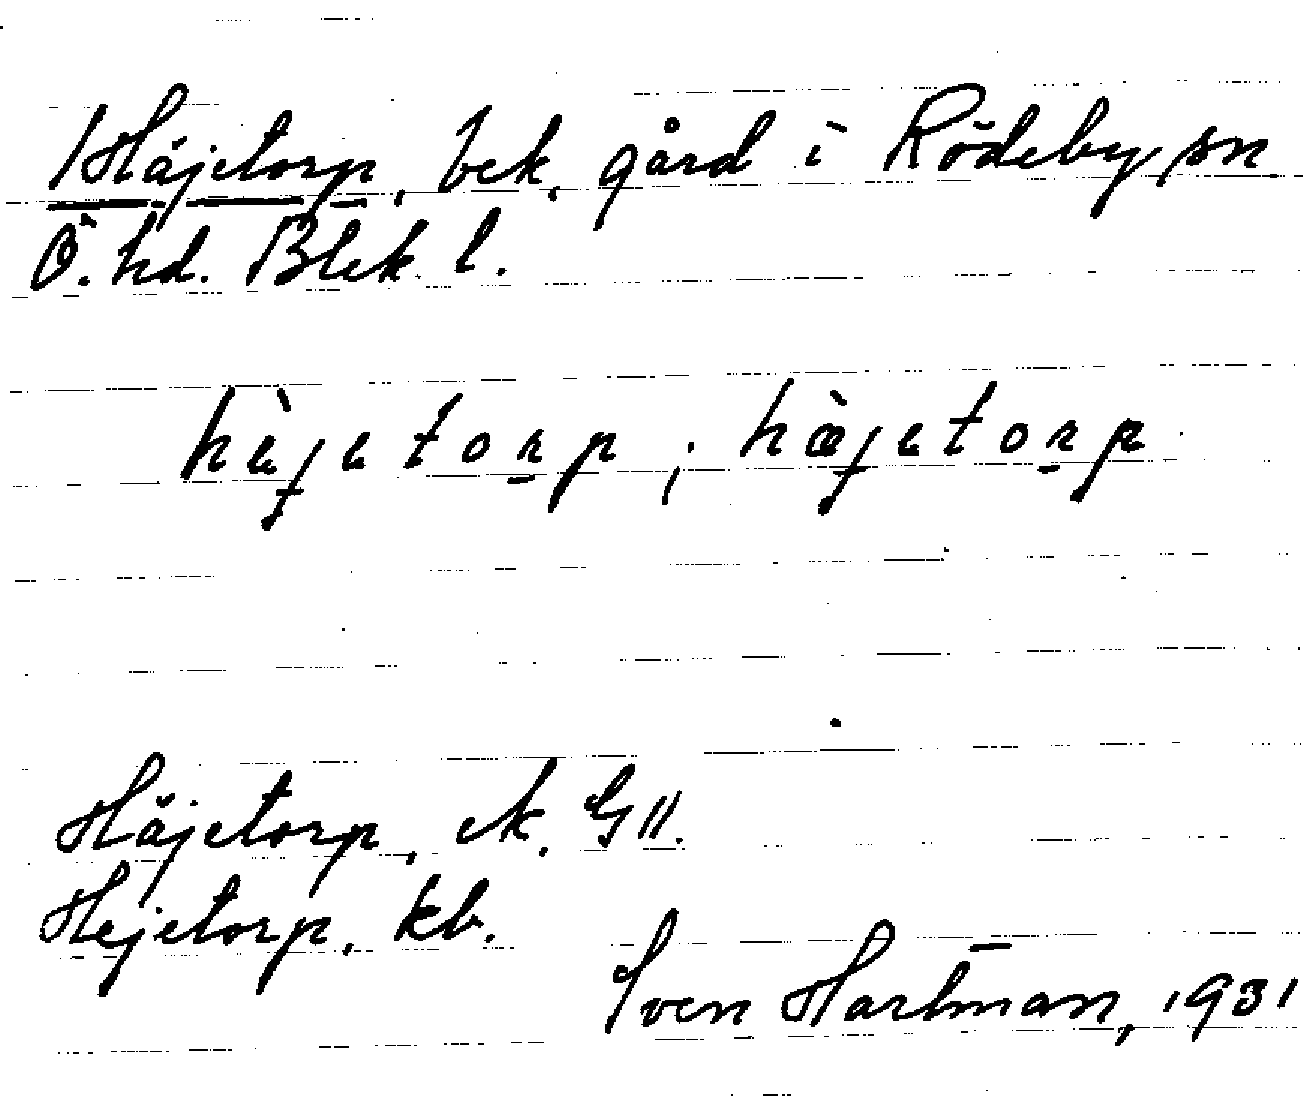 Häjetorp, bek. gård i Rödeby sn
Ö. hd. Blek. l.
hèjetorp; hæ̀jetorp
Häjetorp, ek. G 11.
Hejetorp, kb.
Sven Hartman, 1931